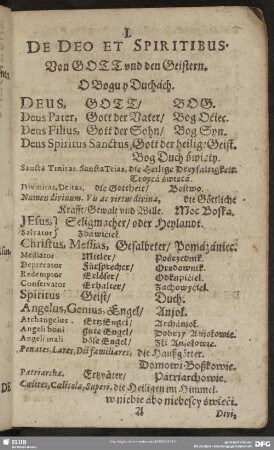 I.
DE DEO ET SPIRITIBUS.
Von GOTT vnd den Geistern.
O Bogu y Duchách.
DEUS, GOTT/ BOG.
Deus Pater, Gott der Vater/ Bog Ociec.
Deus Filius, Gott der Sohn/ Bog Syn.
Deus Spiritus Sanctus, Gott der heilig: Geist.
Bog Duch święty.
Sancta Trinitas. Sancta Trias, die Heilige Dreyfaltigkeit.
Troycá święta.
Divinitas, Deitas, die Gottheit/ Bostwo.
Numen divinum. Vis ac virtus divina, die Göttliche
Krafft/ Gewalt vnd Wille. Moc Boska.
JESUS,} Seligmacher/ oder Heylandt.
Salvator} Zbáwićiel.
Christus, Messias, Gesalbeter/ Pomázániec.
Mediator Mitler/ Pośrzednik.
Deprecator Fürsprecher/ Orędownik.
Redemptor Erlöser/ Odkupićiel.
Conservator Erhalter/ Záchowyćiel.
Spiritus Geist/ Duch.
Angelus, Genius, Engel/ Anjoł.
Archangelus. ErtzEngel/ Archánjoł.
Angeli boni gute Engel/ Dobrzy Anjołowie.
Angeli mali böse Engel/ Zli Anjołowie.
Penates, Lares, Dii familiares, die Haußgötter.
Domowi Bożkowie.
Patriarcha. Ertzväter/ Patriarchowie.
Cœlites, Cælicolæ, Superi, die Heiligen im Himmel.
w niebie ábo niebescy święći.
A Divi,